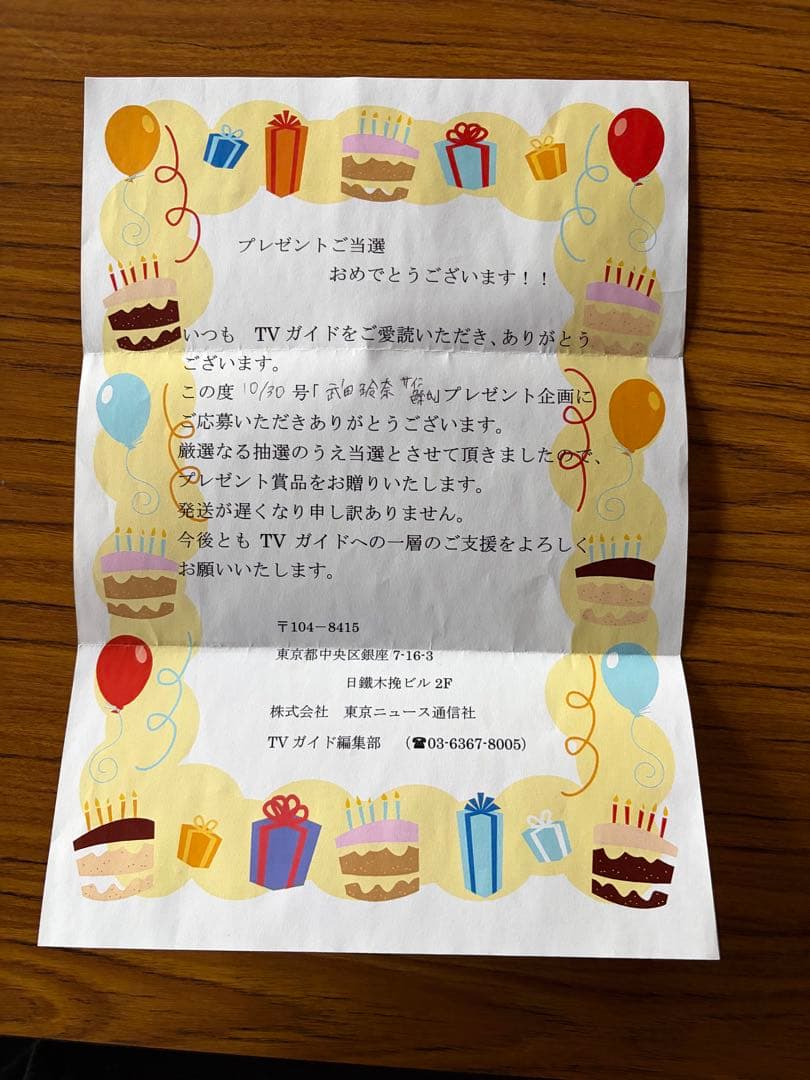 プレゼントご当選
おめでとうございます！！
いつも　TVガイドをご愛読いただき、ありがとう
ございます。
この度 10/30 号「武田玲奈 サイン」プレゼント企画に
ご応募いただきありがとうございます。
厳選なる抽選のうえ当選とさせて頂きましたので、
プレゼント賞品をお贈りいたします。
発送が遅くなり申し訳ありません。
今後とも TV ガイドへの一層のご支援をよろしく
お願いいたします。
〒104－8415
東京都中央区銀座 7-16-3
日鐵木挽ビル 2F
株式会社　東京ニュース通信社
TV ガイド編集部　（☎03-6367-8005）